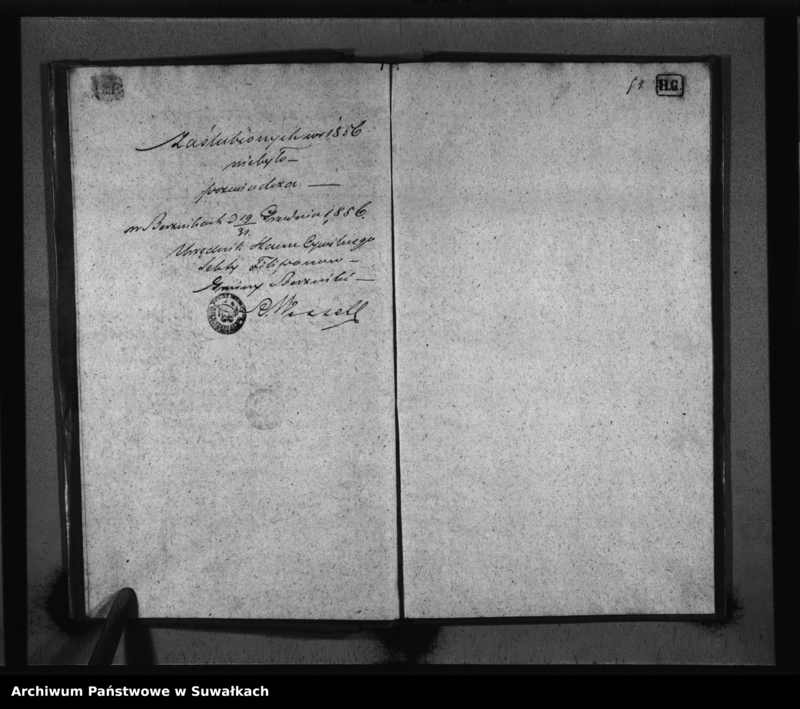 Zaślubionych w r. 1856
niebyło —
poświadcza —
w Berznikach d 19/31 Grudnia 1856.
Urzędnik Stanu Cywilnego
Sekty Filiponow —
Gminy Berzniki —
Wessell
54.
H.G.
Archiwum Państwowe w Suwałkach